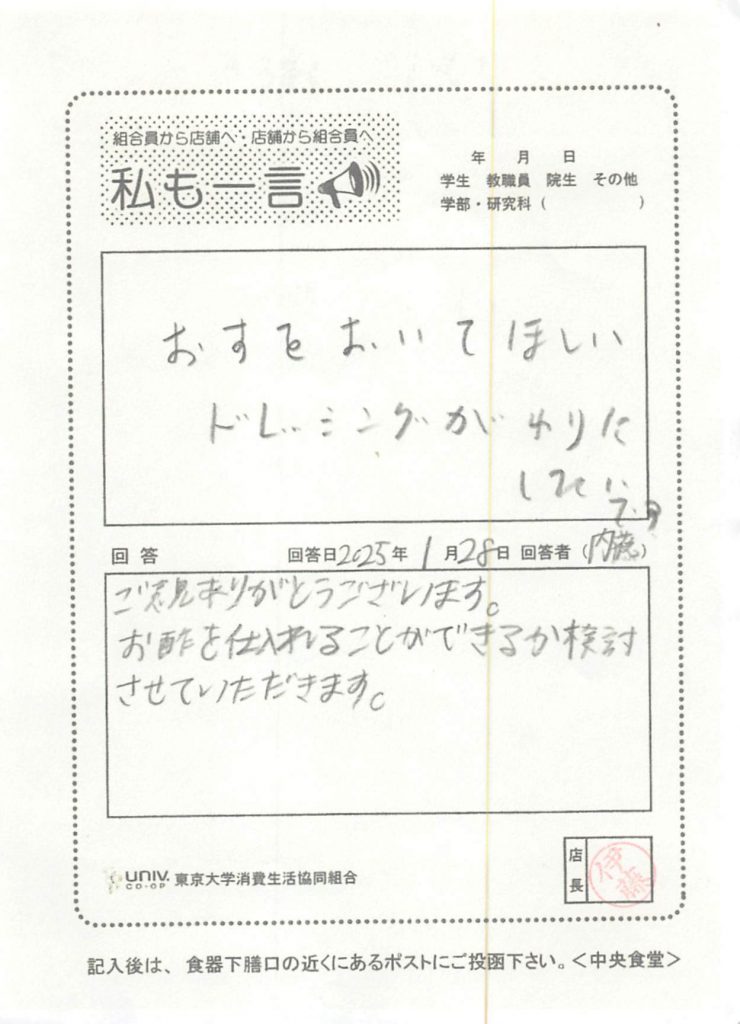 組合員から店舗へ・店舗から組合員へ
私も一言
年 月 日
学生 教職員 院生 その他
学部・研究科( )
おすをおいてほしい
ドレッシングがわりに
したい
です
回答 回答日2025年1月28日 回答者(内藤)
ご意見ありがとうございます。
お酢を仕入れることができるか検討
させていただきます。
店長 伊藤
UNIV. CO-OP 東京大学消費生活協同組合
記入後は、食器下膳口の近くにあるポストにご投函下さい。<中央食堂>